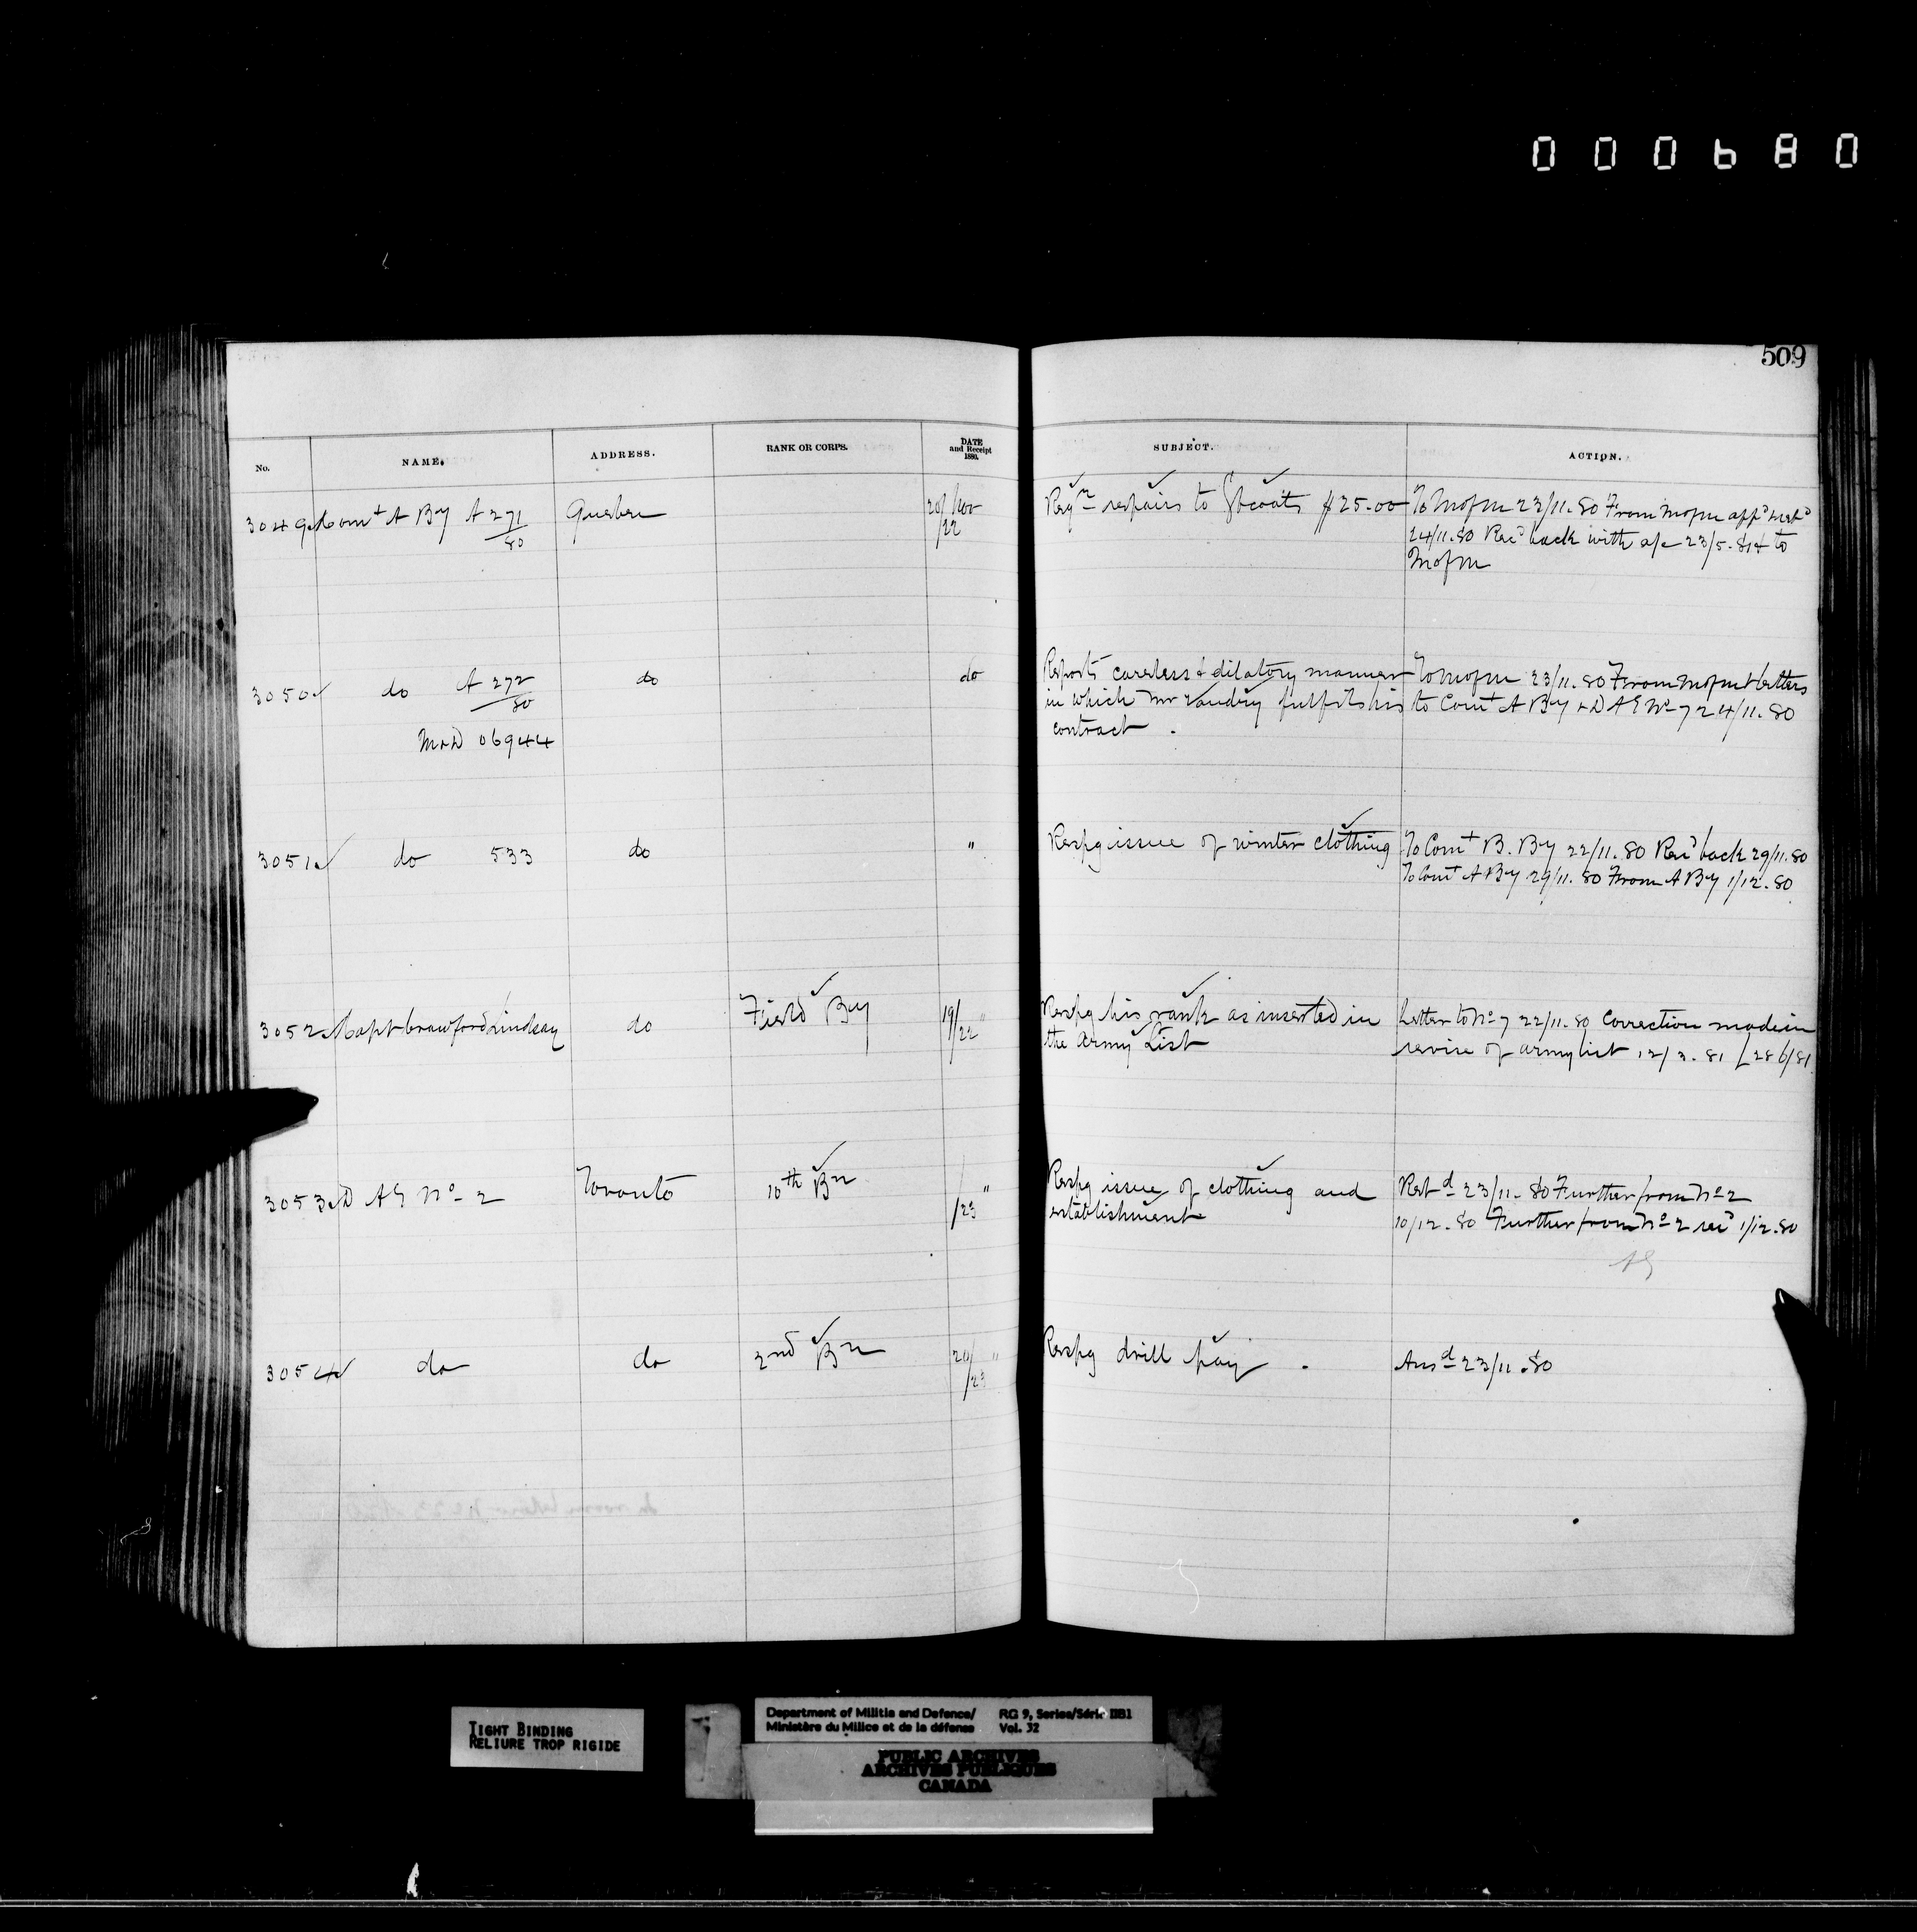 000680
509
No. NAME. ADDRESS. RANK OR CORPS. DATE and Receipt 1880. SUBJECT. ACTION.
3049 Comt A By A 271/80 Quebec 20/22 Nov Reqn repairs to Gtcoats $25.00 To MofM 23/11.80 From MofM appd & retd
24/11.80 Recd back with a/c 23/5.81 & to
MofM
3050 do A 272/80 do do Reports careless & dilatory manner To MofM 23/11.80 From MofM & letters
in which Mr Vandry fulfils his to Comt A By & DAG No 7 24/11.80
contract.
M&D 06944
3051 do 533 do " Respg issue of winter clothing To Comt B. By 22/11.80 Recd back 29/11.80
To Comt A By 29/11.80 From A By 1/12.80
3052 Capt Crawford Lindsay do Field By 19/22 " Respg his rank as inserted in Letter to No 7 22/11.80 Correction made in
the Army List revise of army list 12/3.81
3053 D A G No 2 Toronto 10th Bn /23 " Respg issue of clothing and Retd 23/11.80 Further from No 2
establishment 10/12.80 Further from No 2 recd 1/12.80
AG
3054 do do 2nd Bn 20/23 " Respg drill pay. Ansd 23/11.80
TIGHT BINDING
RELIURE TROP RIGIDE
Department of Militia and Defence/ RG 9, Series/Série IIB1
Ministère du Milice et de la défense Vol. 32
PUBLIC ARCHIVES
ARCHIVES PUBLIQUES
CANADA